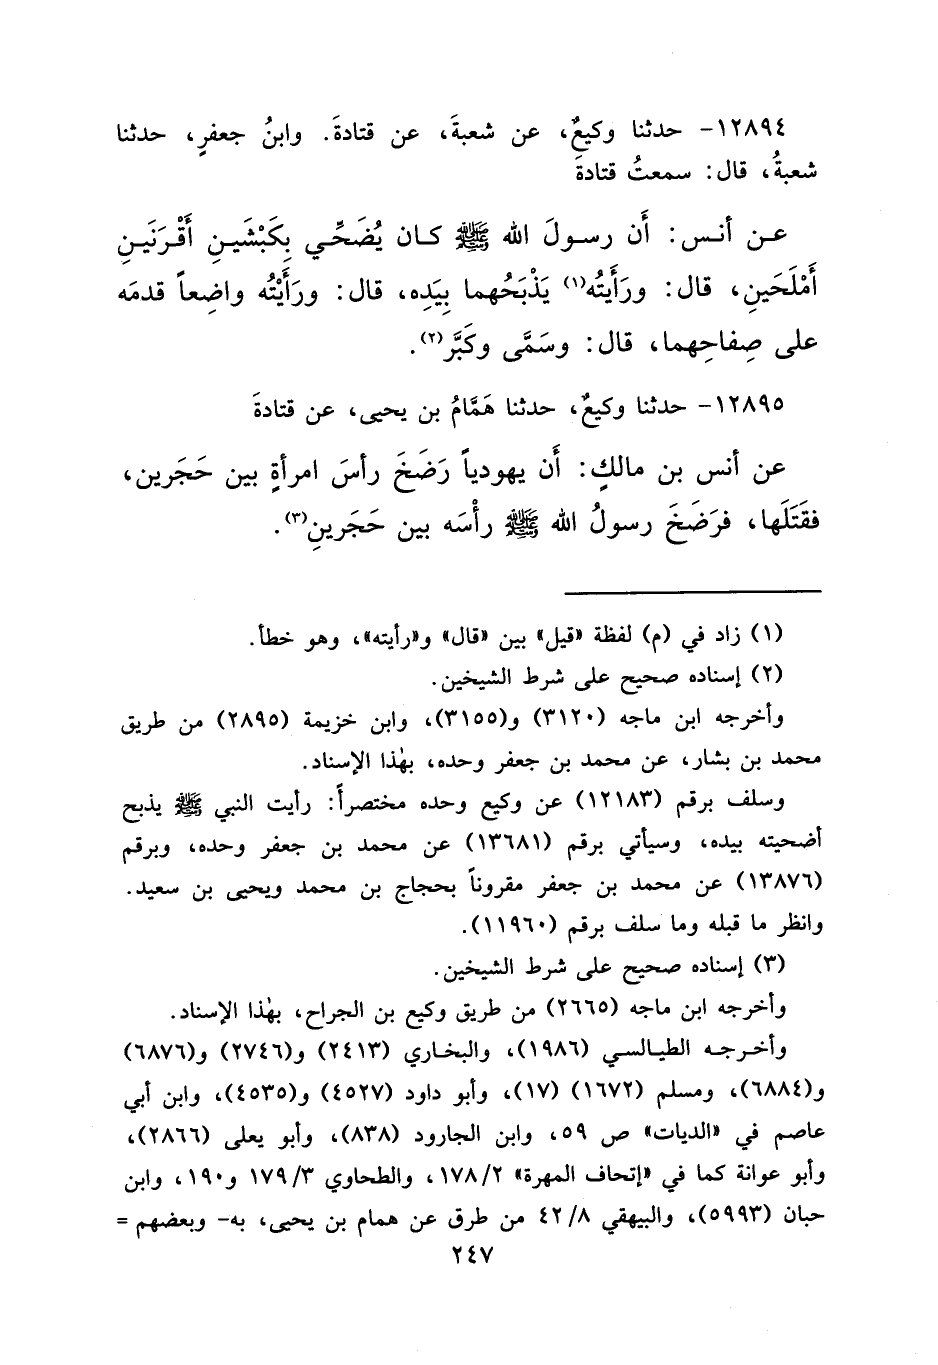 ١٢٨٩٤- حدثنا وكيعٌ، عن شعبةَ، عن قتادةَ. وابنُ جعفرٍ، حدثنا
شعبةُ، قال: سمعتُ قتادةَ
عن أنس: أَن رسولَ الله ﷺ كان يُضَحِّي بِكَبْشَينِ أَقْرَنَينِ
أَمْلَحَينِ، قال: ورَأَيتُه(١) يَذْبَحُهما بِيَدِه، قال: ورَأَيْتُه واضِعاً قدمَه
على صِفاحِهما، قال: وسَمَّى وكَبَّر(٢).
١٢٨٩٥- حدثنا وكيعٌ، حدثنا هَمَّامُ بن يحيى، عن قتادةَ
عن أنس بن مالكٍ: أَن يهودياً رَضَخَ رأسَ امرأةٍ بين حَجَرين،
فقَتَلَها، فرَضَخَ رسولُ الله ﷺ رأْسَه بين حَجَرينِ(٣).
(١) زاد في (م) لفظة «قيل» بين «قال» و«رأيته»، وهو خطأ.
(٢) إسناده صحيح على شرط الشيخين.
وأخرجه ابن ماجه (٣١٢٠) و(٣١٥٥)، وابن خزيمة (٢٨٩٥) من طريق
محمد بن بشار، عن محمد بن جعفر وحده، بهٰذا الإسناد.
وسلف برقم (١٢١٨٣) عن وكيع وحده مختصراً: رأيت النبي ﷺ يذبح
أضحيته بيده، وسيأتي برقم (١٣٦٨١) عن محمد بن جعفر وحده، وبرقم
(١٣٨٧٦) عن محمد بن جعفر مقروناً بحجاج بن محمد ويحيى بن سعيد.
وانظر ما قبله وما سلف برقم (١١٩٦٠).
(٣) إسناده صحيح على شرط الشيخين.
وأخرجه ابن ماجه (٢٦٦٥) من طريق وكيع بن الجراح، بهٰذا الإسناد.
وأخرجه الطيالسي (١٩٨٦)، والبخاري (٢٤١٣) و(٢٧٤٦) و(٦٨٧٦)
و(٦٨٨٤)، ومسلم (١٦٧٢) (١٧)، وأبو داود (٤٥٢٧) و(٤٥٣٥)، وابن أبي
عاصم في «الديات» ص ٥٩، وابن الجارود (٨٣٨)، وأبو يعلى (٢٨٦٦)،
وأبو عوانة كما في «إتحاف المهرة» ١٧٨/٢، والطحاوي ١٧٩/٣ و١٩٠، وابن
حبان (٥٩٩٣)، والبيهقي ٤٢/٨ من طرق عن همام بن يحيى، به- وبعضهم =
٢٤٧